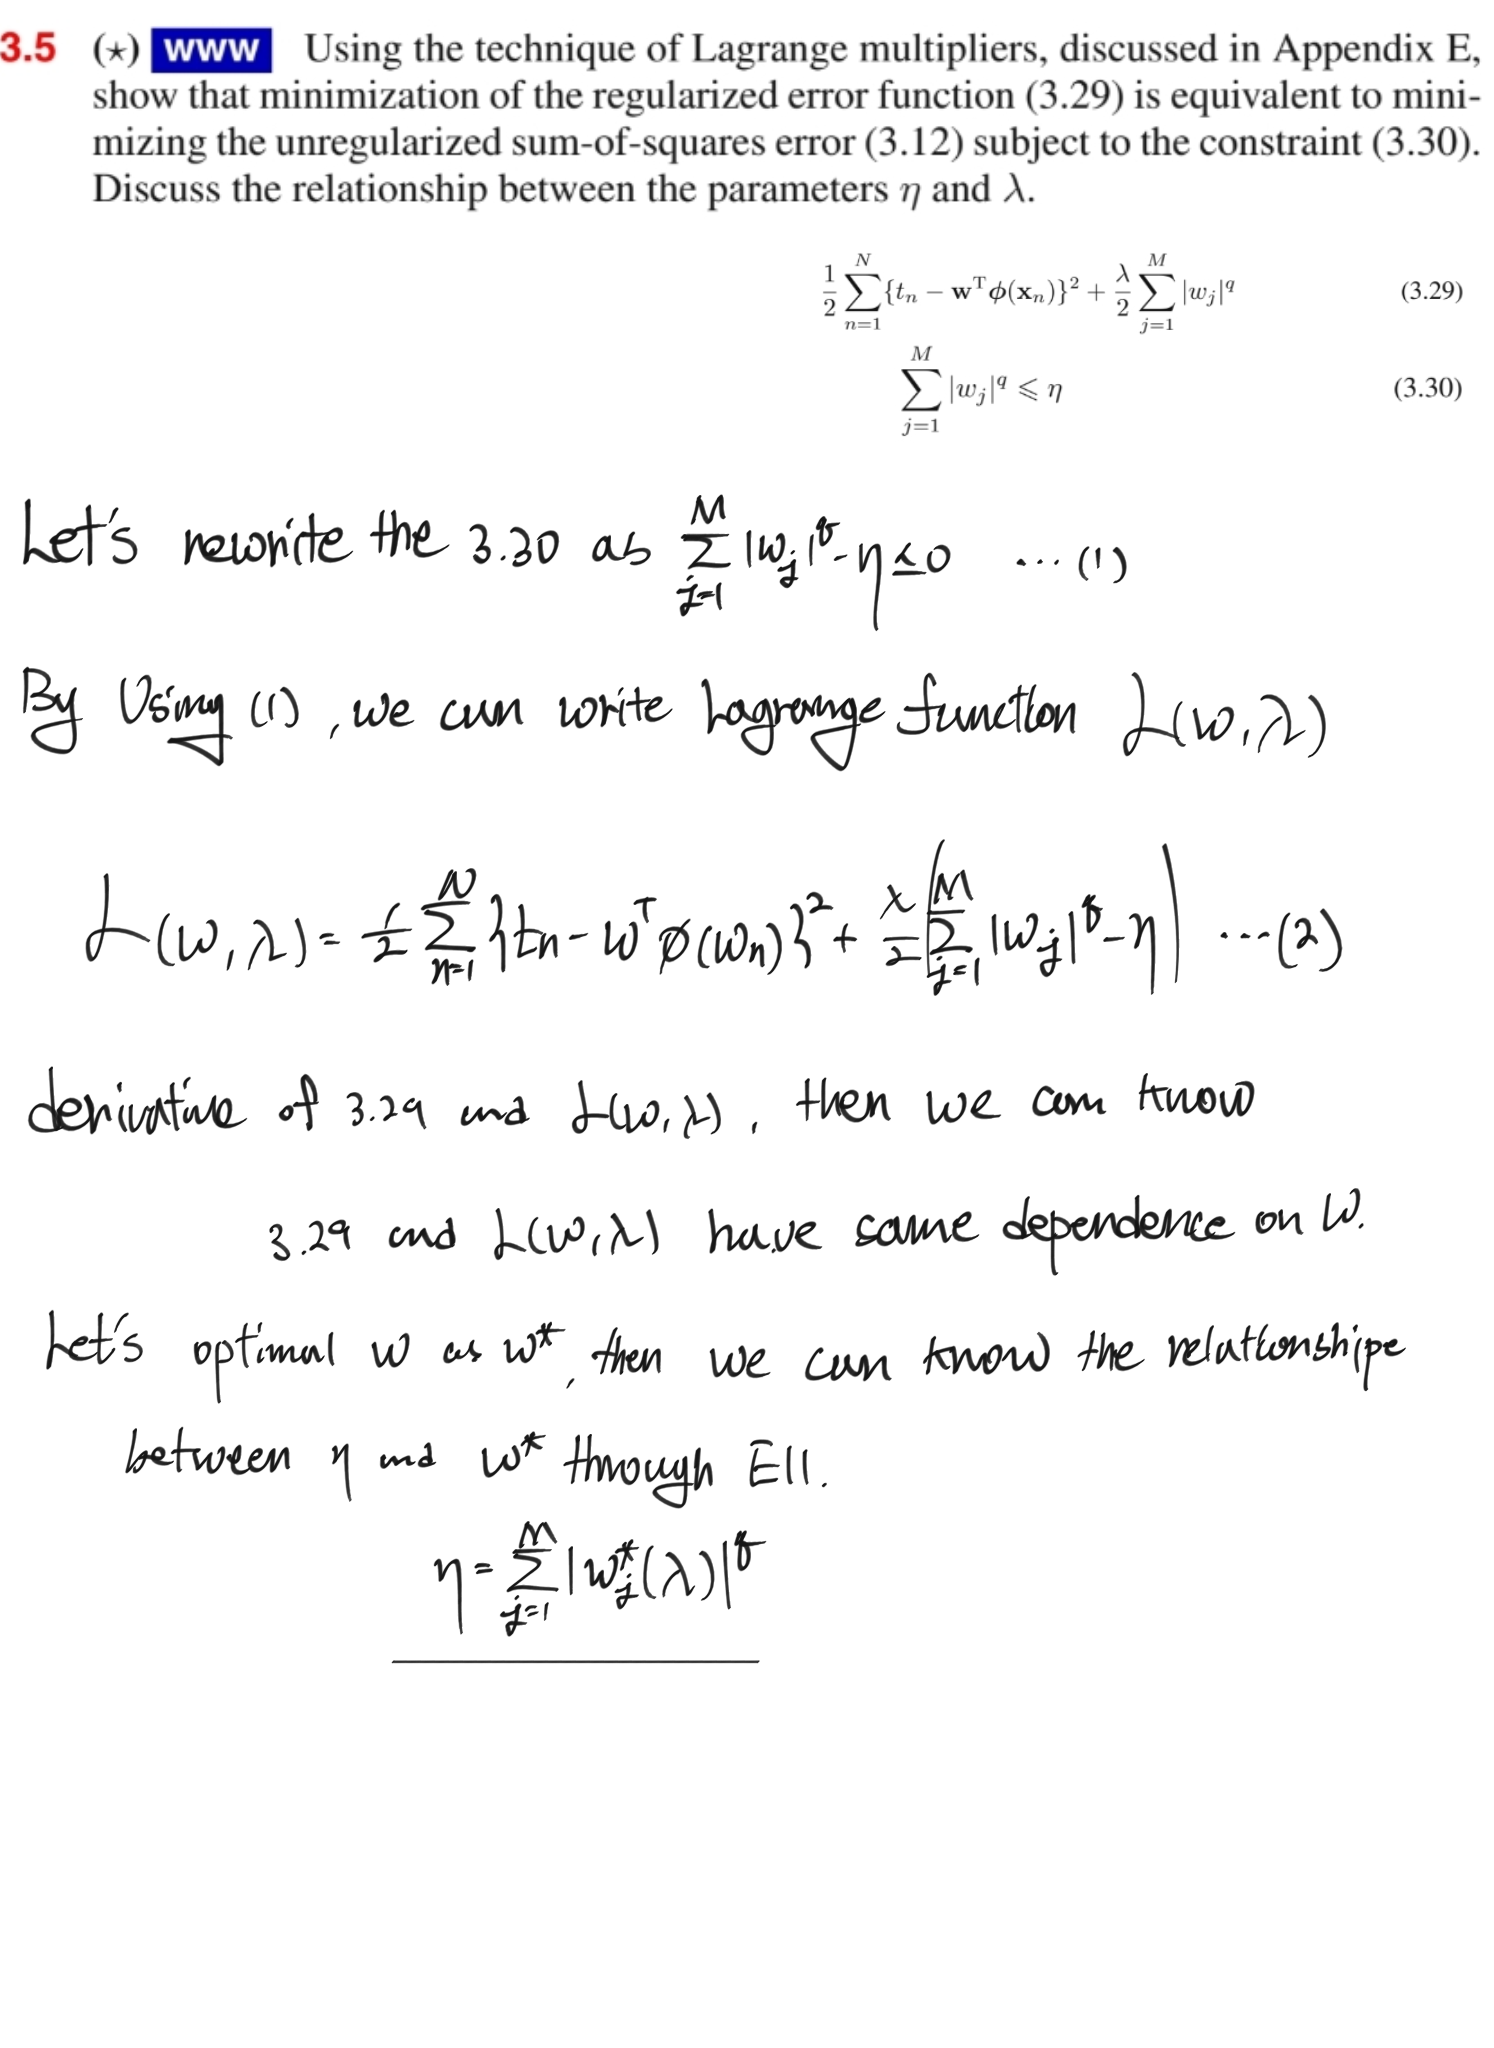 3.5 (⋆) www Using the technique of Lagrange multipliers, discussed in Appendix E,
show that minimization of the regularized error function (3.29) is equivalent to mini-
mizing the unregularized sum-of-squares error (3.12) subject to the constraint (3.30).
Discuss the relationship between the parameters η and λ.
\frac{1}{2} \sum_{n=1}^{N} \{t_n - \mathbf{w}^T \phi(\mathbf{x}_n)\}^2 + \frac{λ}{2} \sum_{j=1}^{M} |w_j|^q (3.29)
\sum_{j=1}^{M} |w_j|^q ⩽ η (3.30)
Let's rewrite the 3.30 as \sum_{j=1}^{M} |w_j|^q - η ≤ 0 ... (1)
By Using (1), we can write Lagrange function L(w, λ)
L(w, λ) = \frac{1}{2} \sum_{n=1}^{N} \{t_n - w^T ϕ(w_n)\}^2 + \frac{λ}{2} ( \sum_{j=1}^{M} |w_j|^q - η ) ... (2)
derivative of 3.29 and L(w, λ), then we can know
3.29 and L(w, λ) have same dependence on W.
Let's optimal w as w*, then we can know the relationshipe
between η and w* through E11.
η = \sum_{j=1}^{M} |w_j^*(λ)|^q